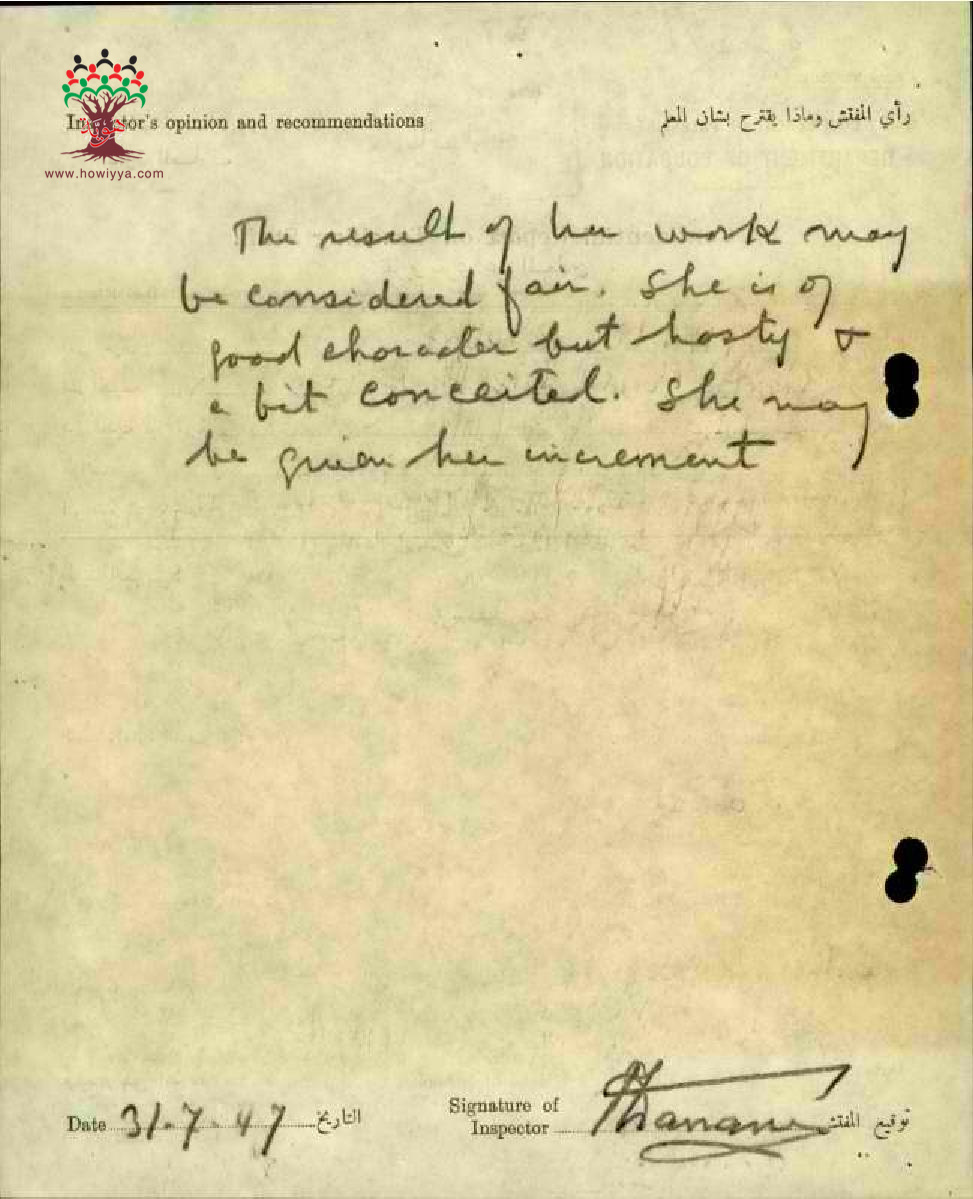 Inspector's opinion and recommendations
رأي المفتش وماذا يقترح بشان المعلم
www.howiyya.com
The result of her work may
be considered fair. She is of
good character but hasty &
a bit conceited. She may
be given her increment
Date 31.7.47 التاريخ
Signature of
Inspector توقيع المفتش